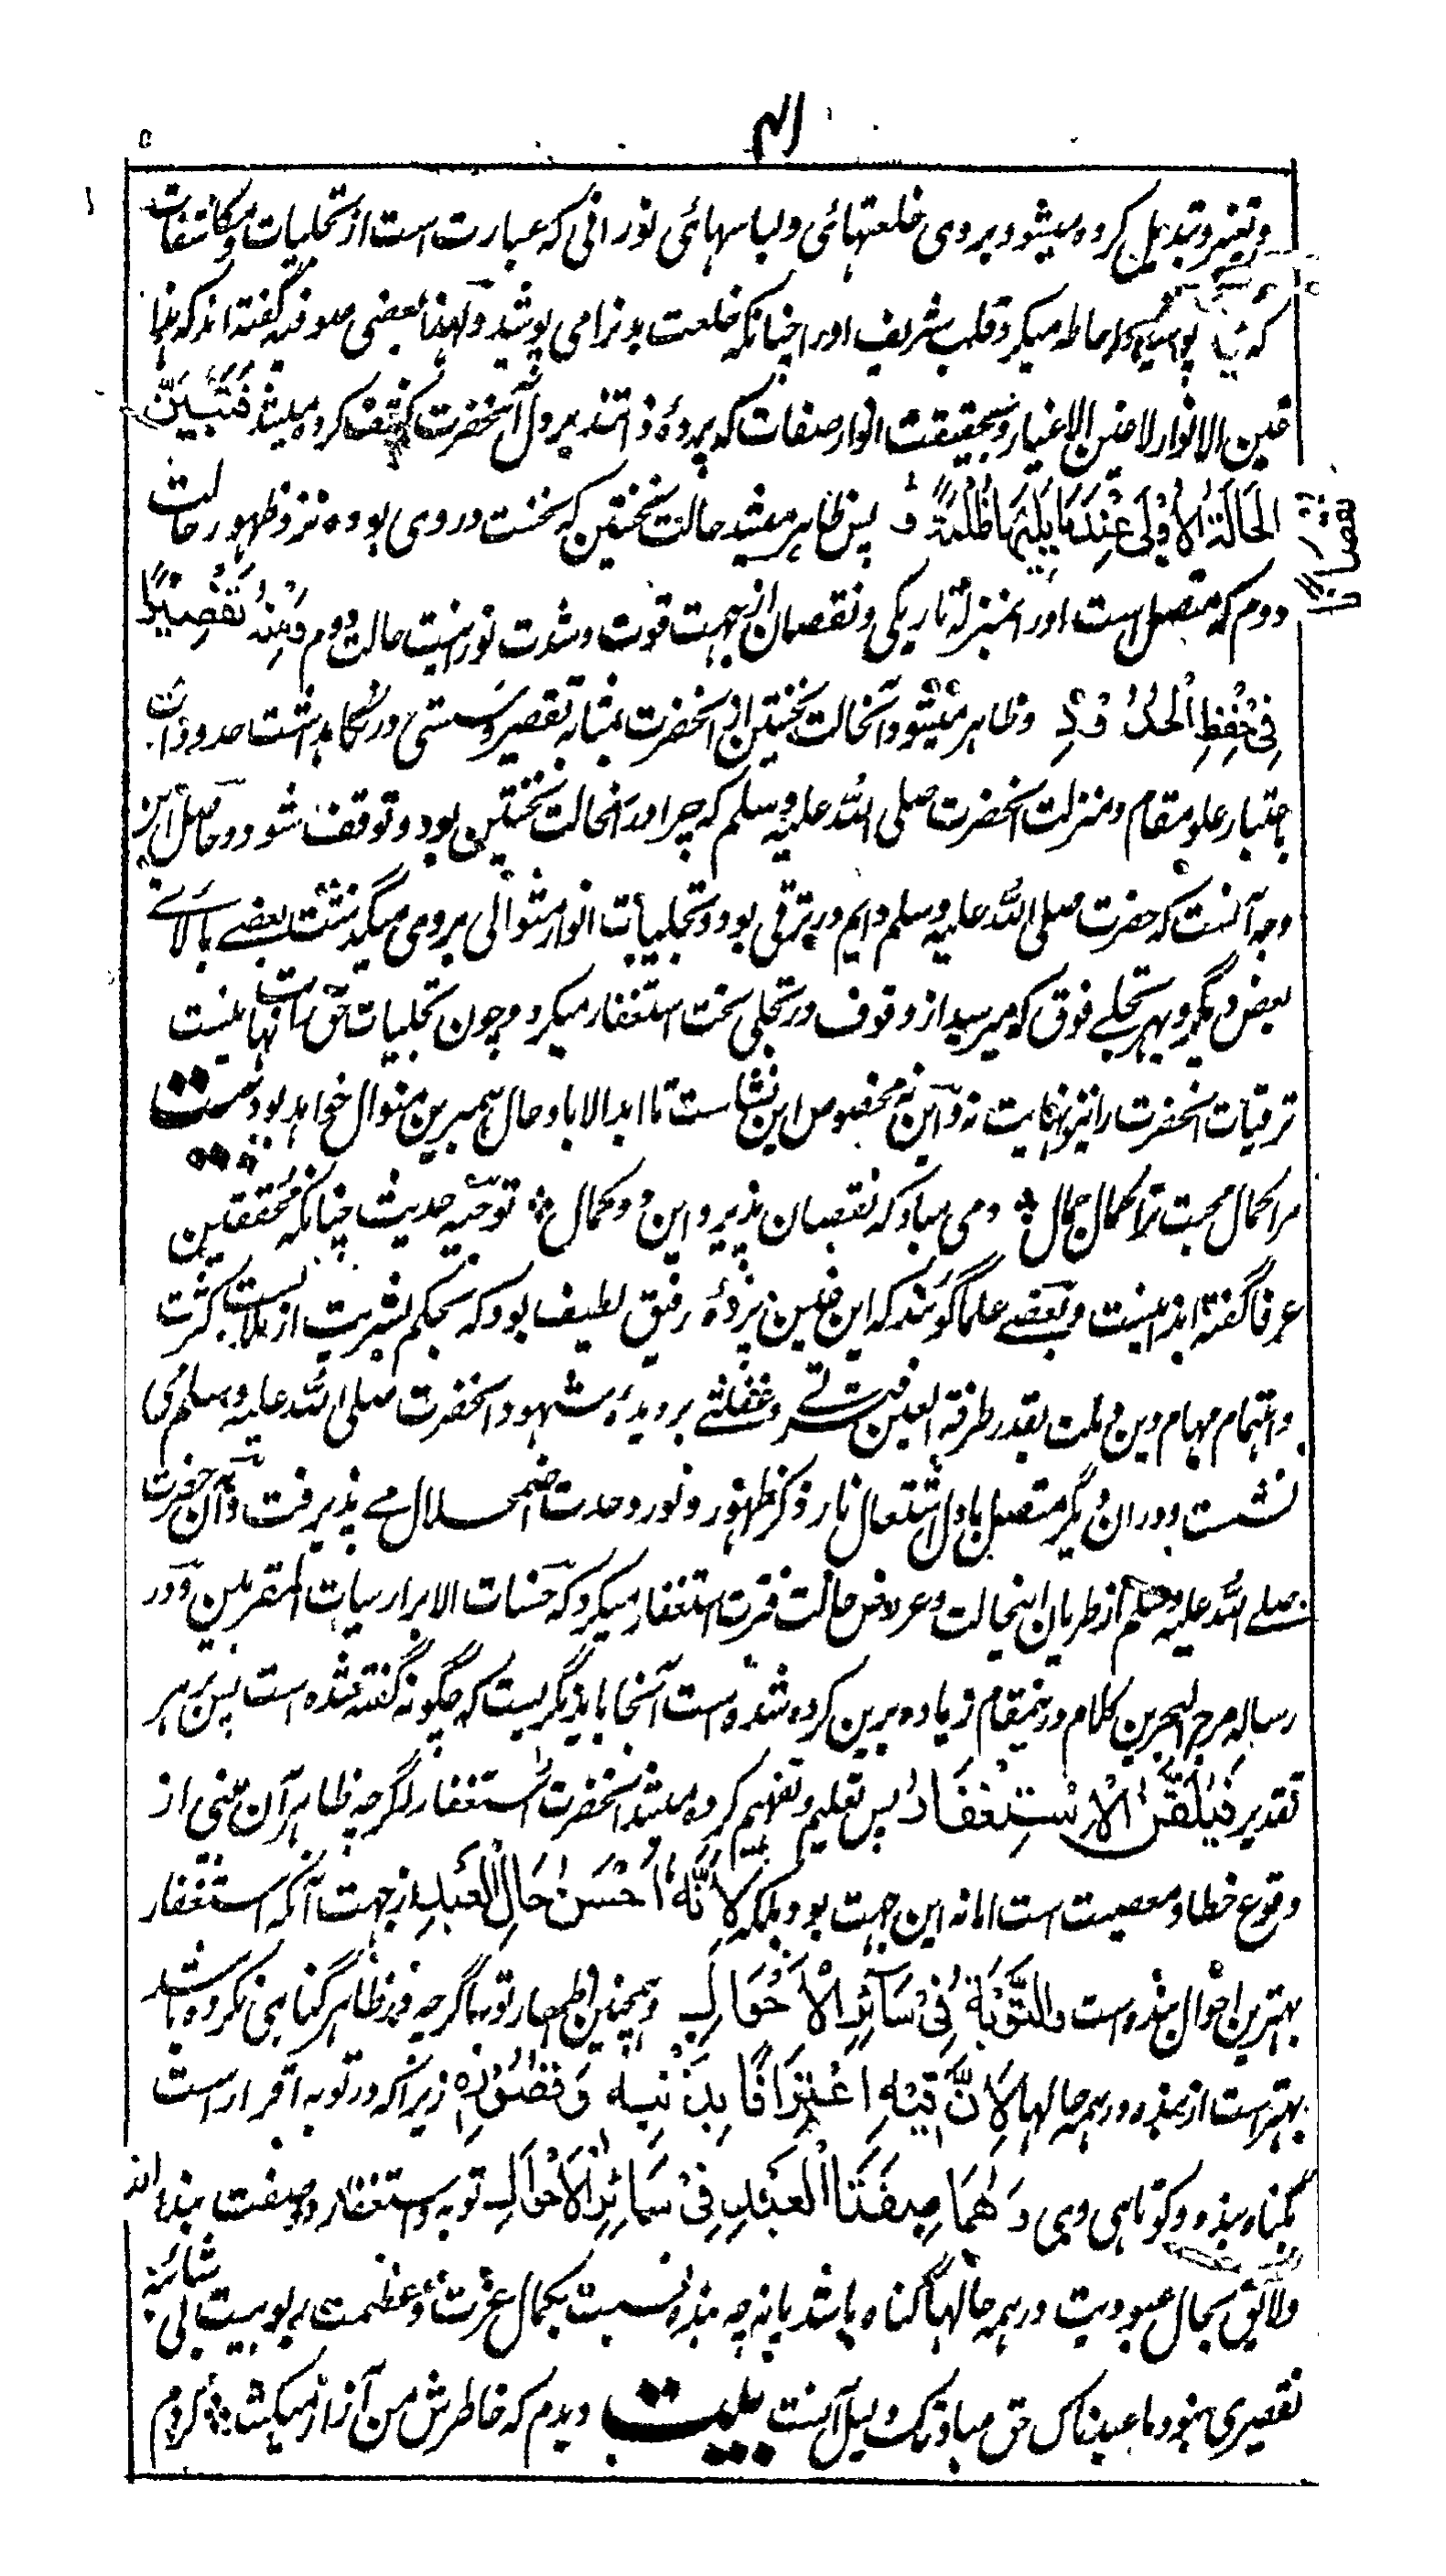 ۴۱
وتغیر وتبدیل کرده میشود بروی خلعتهائی ولباسهائی نورانی که عبارت است از تجلیات ومکاشفات
که احاطه میکرد قلب شریف اورا چنانکه خلعت بدنرا می پوشید ولهذا بعضی صوفیه گفته اند که هذا
غین الانوار لا غین الاغیار وبحقیقت انوار صفات که پردۀ ذاتند بر دل آنحضرت کشف کرده میشد فتبین
الحالة الاولی عندما یلیها ظلمة و پس ظاهر میشد حالت نخستین که نخست در وی بوده نزد ظهور حالت
نقصانا
دوم که متصل است اورا بمنزله تاریکی ونقصان از جهت قوت وشدت نورانیت حالت دوم ومنه تقصیرا
فی حفظ الحدود وظاهر میشود آنحالت نخستین از آنحضرت بمثابه تقصیر وسستی در نگاهداشت حدود ذات
باعتبار علو مقام ومنزلت آنحضرت صلی الله علیه وسلم که چرا در آنحالت نخستین بود وتوقف شود وحاصل این
وجه آنست که حضرت صلی الله علیه وسلم دایم در ترقی بود وتجلیات انوار متوالی بروی میگذشت بعضے بالائے
بعض دیگر وبهر تجلے فوق که میرسید از وقوف در تجلی تحت استغفار میکرد وچون تجلیات حق را نهایت نیست
ترقیات آنحضرت را نیز نهایت نه واین نه مخصوص این نشاست تا ابد الاباد حال همبرین منوال خواهد بود بیت
مرا کمال محبت ترا کمال جمال دمی مباد که نقصان پذیرد این دو کمال توجیه حدیث چنانکه محققین
عرفا گفته اند اینست وبعضے علما گویند که این غین پردۀ رقیق لطیف بود که بحکم بشریت از ملابست کثرت
واهتمام مهام دین وملت بقدر طرفة العین فترتے وغفلتے بر دیدۀ شهود آنحضرت صلی الله علیه وسلم می
نشست ودر آن دیگر متصل باول اشتعال نار ذکر وظهور نور وحدت اضمحلال مے پذیرفت وآن حضرت
صلے الله علیه وسلم از طریان اینحالت وعروض حالت فترت استغفار میکرد که حسنات الابرار سیات المقربین ودر
رساله مرج البحرین کلام درینمقام زیاده برین کرده شده است آنجا باید نگریست که چگونه گفته شده است پس بر هر
تقدیر فیلقن الاستغفار پس تعلیم وتفهیم کرده میشد آنحضرت استغفار اگرچه ظاهر آن مبنی از
وقوع خطا ومعصیت است اما نه این جهت بود بلکه لانه احسن حال العبد از جهت آنکه استغفار
بهترین احوال بنده است والتوبة فی سائر الاحوال وهمچنین اظهار توبه اگرچه در ظاهر گناهی نکرده باشد
بهتر است از بنده در همه حالها لان فیه اعترافا بذنبه وقصوره زیرا که در توبه اقرار است
بگناه بنده وکوتاهی وی وهما صفتا العبد فی سائر الاحوال توبه واستغفار دو صفت بنده اند
ولایق بحال عبودیت در همه حالها گناه باشد یا نه چه بنده نسبت بکمال عزت وعظمت ربوبیت بی شائبه
تقصیری نبود ما عبدناک حق عبادتک دلیل آنست بیت دیدم که خاطرش من آزار میکشد کردم